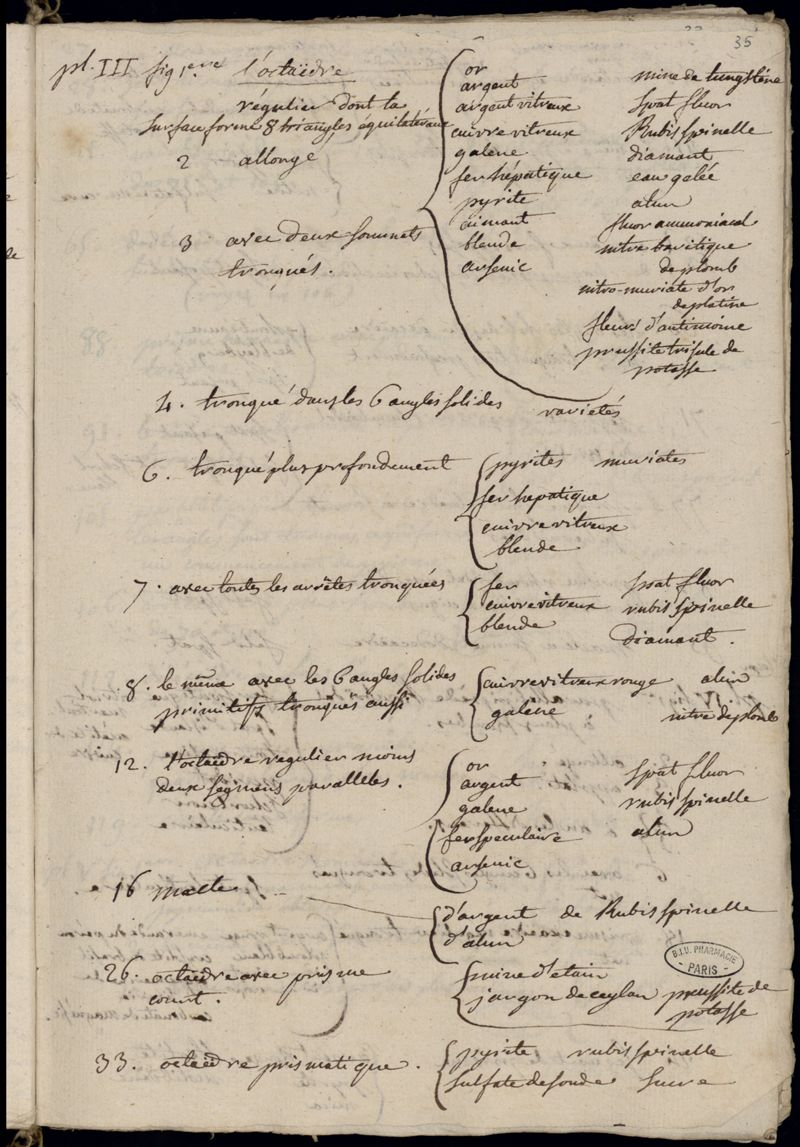 35
pl. III fig 1ere l'octaëdre
régulier dont la
surface forme 8 triangles équilatéraux
2 allongé
3 avec deux sommets
tronqués.
or
argent
argent vitreux
cuivre vitreux
galene
fer hépatique
pyrite
aimant
blende
arsenic
mine de tungstène
spat fluor
Rubis spinelle
diamant
eau gelée
alun
fluor ammoniacal
nitre baritique
de plomb
nitro-muriate d'or
de platine
fleurs d'antimoine
prussite trisule de
potasse
4. tronqué dans les 6 angles solides varietés
6. tronqué plus profondement
pyrites muriates
fer hepatique
cuivre vitreux
blende
7. avec toutes les arrêtes tronquées
fer spat fluor
cuivre vitreux rubis spinelle
blende diamant.
8. le même avec les 6 angles solides
primitifs tronqués aussi
cuivre vitreux rouge alun
galène nitre de plomb
12. l'octaedre regulier moins
deux segmens paralleles.
or
argent spat fluor
galene rubis spinelle
fer speculaire alun
arsenic
16 macle
d'argent de Rubis spinelle
d'alun
B.I.U. PHARMACIE
PARIS
26. octaedre avec prisme
court.
mine d'etain
jargon de ceylan prussite de
potasse
33. octaedre prismatique.
pyrite rubis spinelle
sulfate de soude sucre